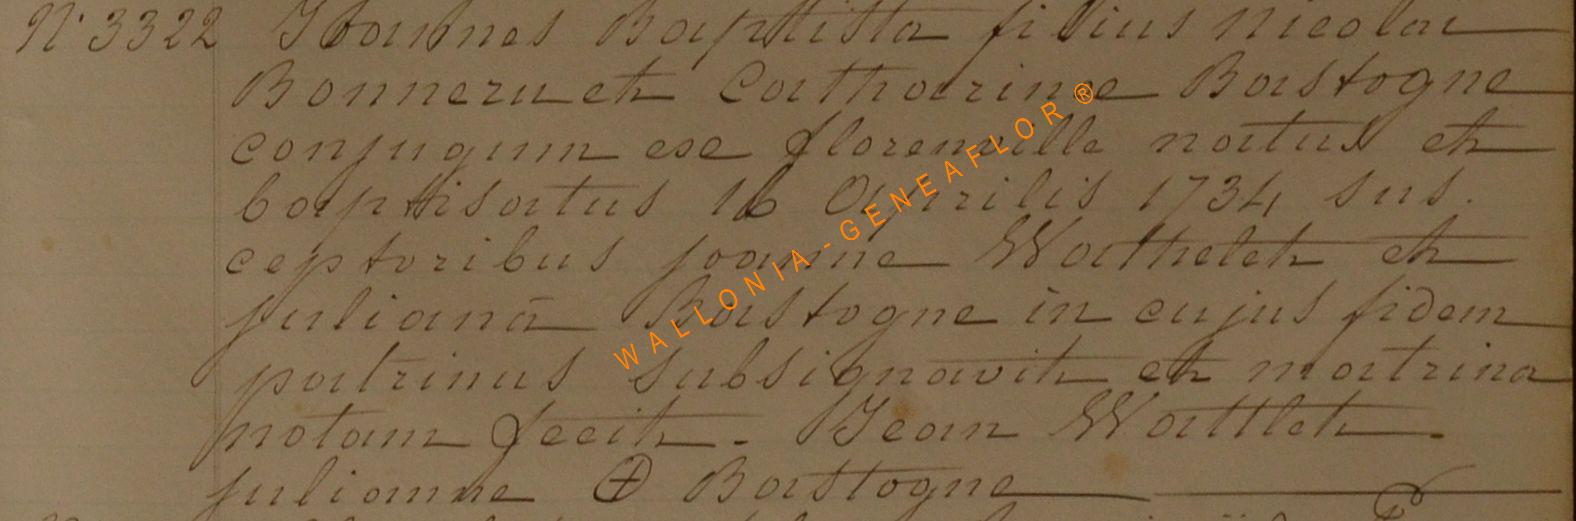 N° 3322 Joannes Baptista filius Nicolai
Bonneru et Catharine Bastogne
conjugum ex florenville natus et
baptisatus 16 Aprilis 1734 sus.
ceptoribus joanne Wathelet et
julianā Bastogne in cujus fidem
patrinus subsignavit et matrina
notam fecit. Jean Wattlet.
julianne ⊕ Bastogne
WALLONIA-GENEAFLOR®